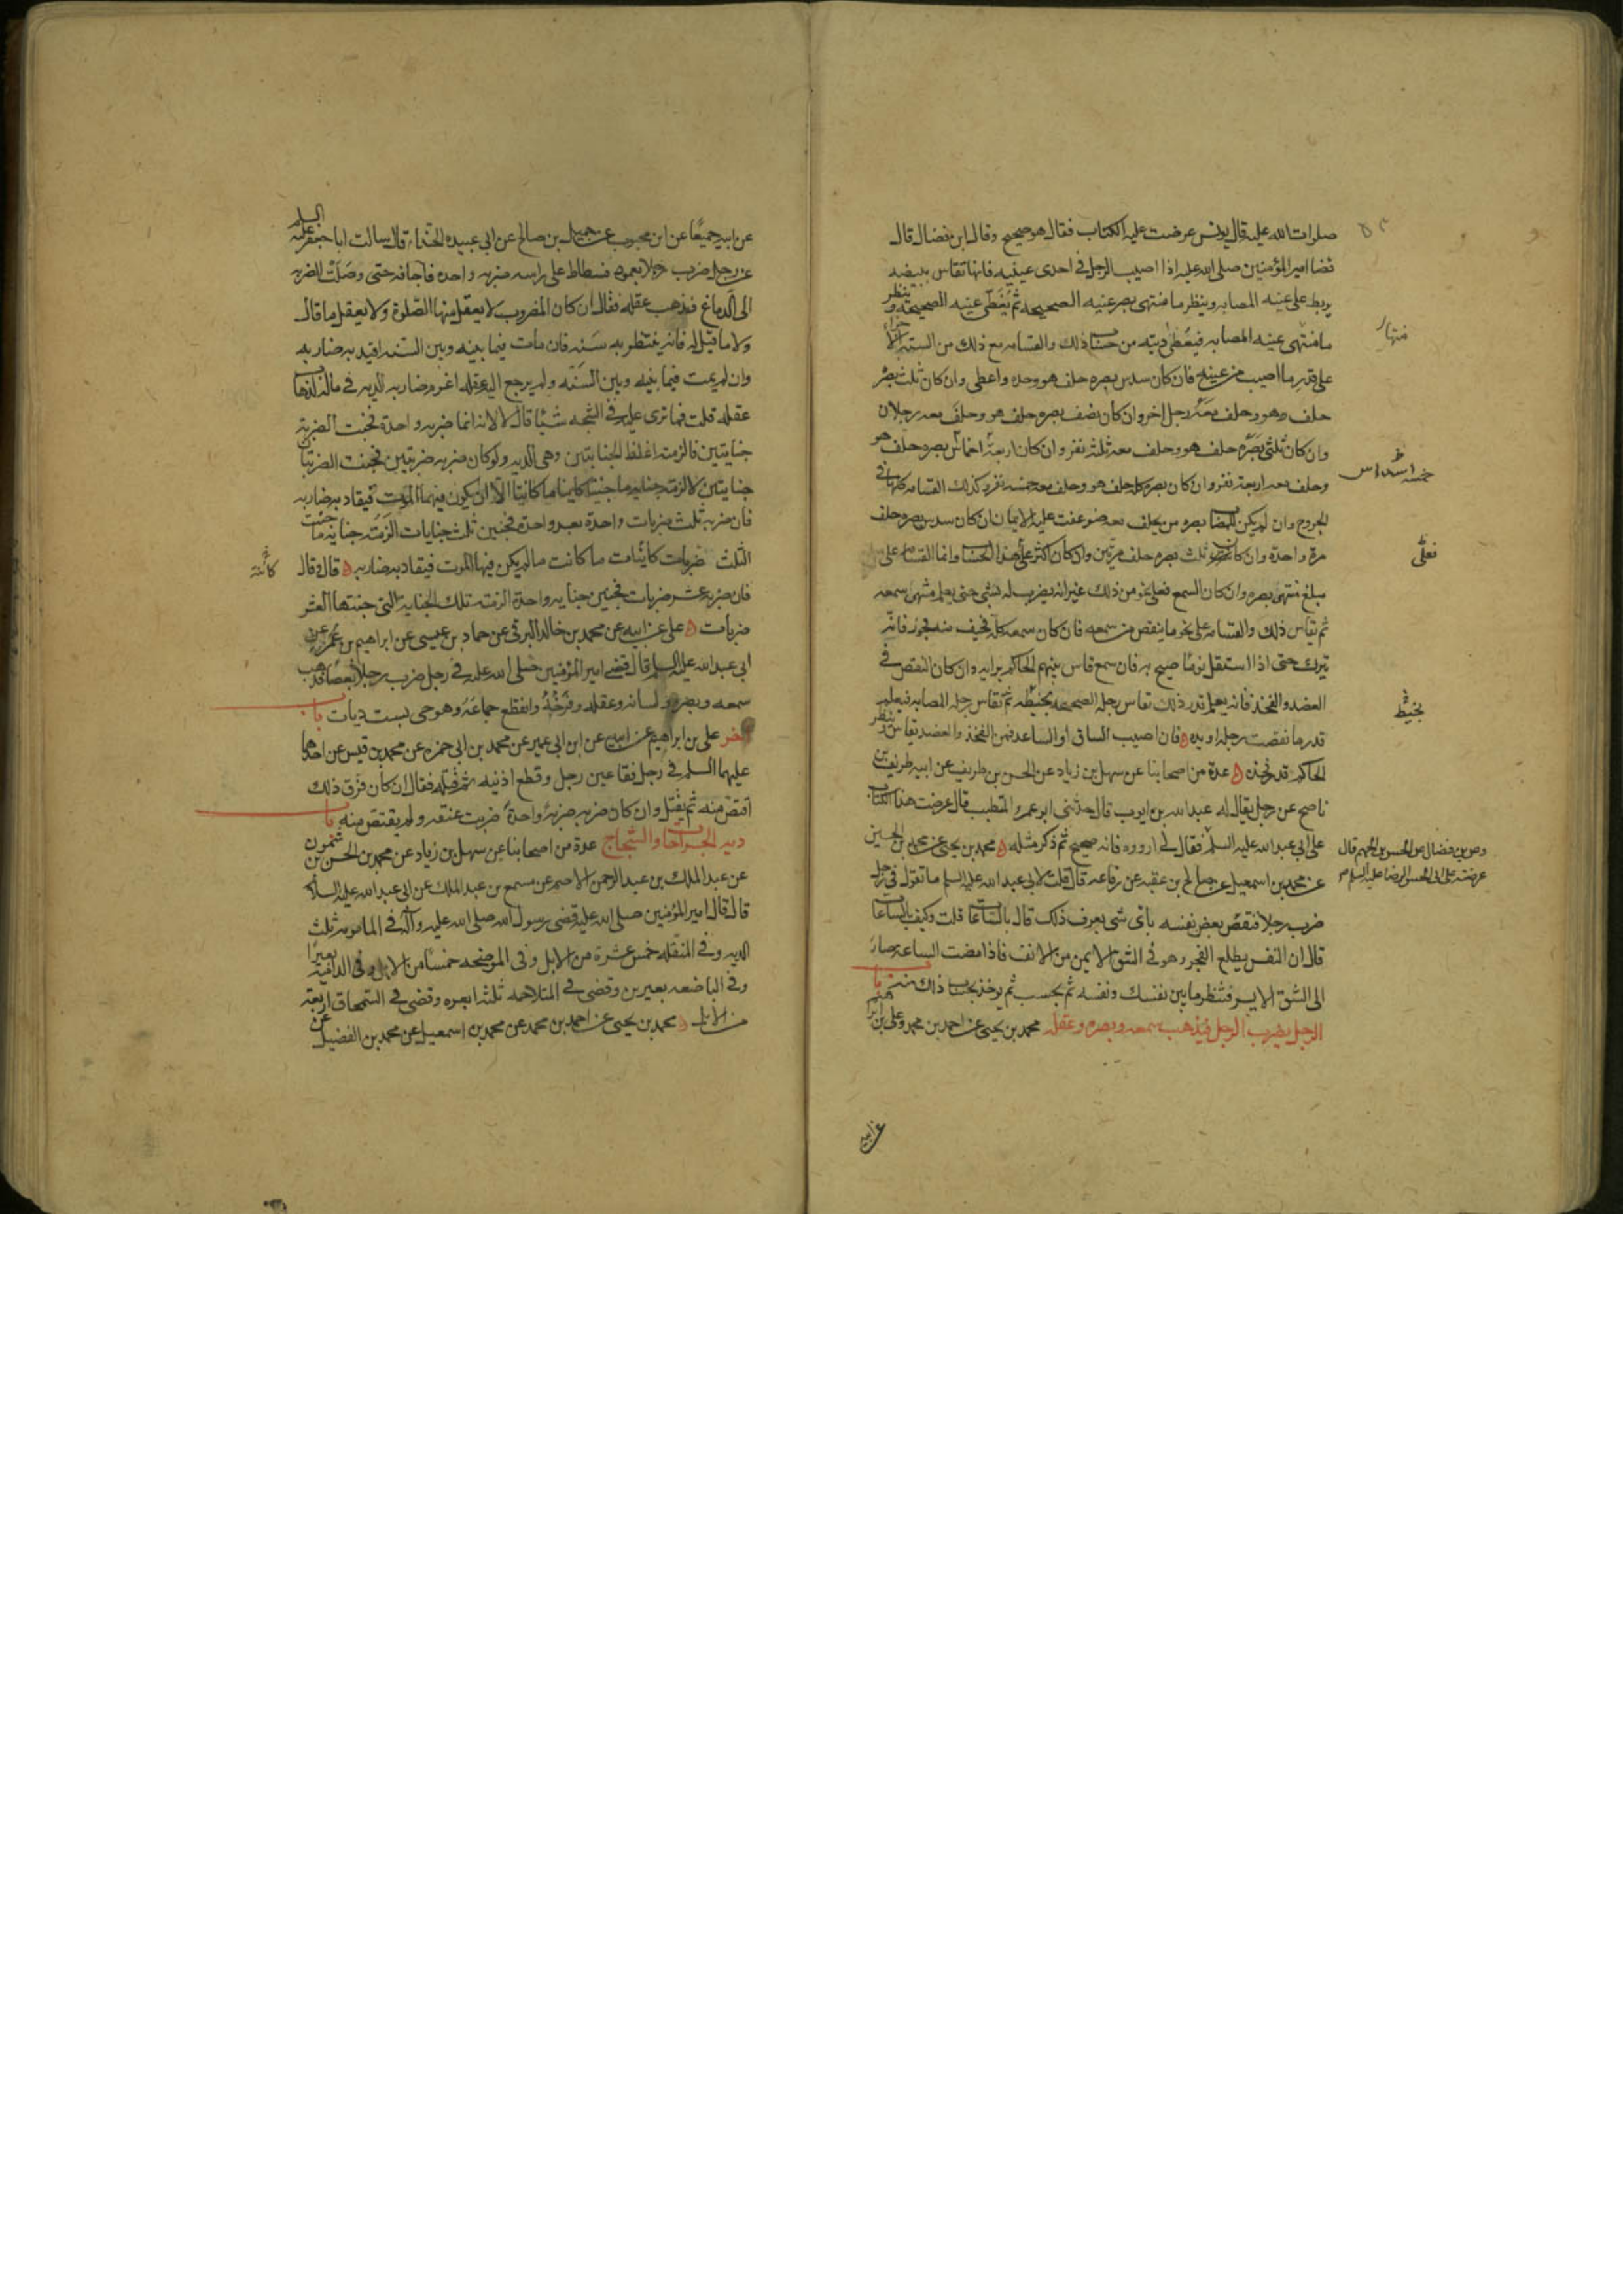 صلوات الله عليه قال يونس عرضت عليه الكتاب فقال هو صحيح وقال ابن فضال قال
قضا امير المؤمنين صلى الله عليه اذا اصيب الرجل في احدى عينيه فانها تقاس ببيضه
يربط على عينه المصابه وينظر ما منتهى بصر عينه الصحيحه ثم يغطى عينه الصحيحه وينظر
ما منتهى عينه المصابه فيعطى ديته من حساب ذلك والقسامه مع ذلك من السته الاجزا
على قدر ما اصيب من عينه فان كان سدس بصره حلف هو وحده واعطى وان كان ثلث بصره
حلف هو وحلف معه رجل اخر وان كان نصف بصره حلف هو وحلف معه رجلان
وان كان ثلثي بصره حلف هو وحلف معه ثلثه نفر وان كان اربعة اخماس بصره حلف هو
وحلف معه اربعة نفر وان كان بصره كله حلف هو وحلف معه خمسه نفر وكذلك القسامه كلها في
الجروح وان لم يكن للمصاب بصره من يحلف معه ضوعفت عليه الايمان ان كان سدس بصره حلف
مرة واحدة وان كان ثلث بصره حلف مرتين وان كان اكثر على هذا الحساب وانما القسامه على
مبلغ منتهى بصره وان كان السمع فعلى نحو من ذلك غير انه يضرب له بشي حتى يعلم منتهى سمعه
ثم يقاس ذلك والقسامه على نحو ما ينقص من سمعه فان كان سمعه كله فخيف منه فجور فانه
يترك حتى اذا استقل نوما صيح به فان سمع قاس بينهم الحاكم برايه وان كان النقص في
العضد والفخذ فانه يعلم قدر ذلك تقاس رجله الصحيحه بخيط ثم تقاس رجله المصابه فيعلم
قدر ما نقصت رجله او يده فان اصيب الساق او الساعد فمن الفخذ والعضد تقاس وينظر
الحاكم قدر فخذه عدة من اصحابنا عن سهل بن زياد عن الحسن بن ظريف عن ابيه ظريف بن
ناصح عن رجل يقال له عبد الله بن ايوب قال حدثني ابو عمرو المتطبب قال عرضت هذا الكتاب
على ابي عبد الله عليه السلم فقال لي ارووه فانه صحيح ثم ذكر مثله محمد بن يحيى عن محمد بن الحسين
عن محمد بن اسمعيل عن صالح بن عقبه عن رفاعه قال قلت لابي عبد الله عليه السلم ما تقول في رجل
ضرب رجلا فنقص بعض نفسه باي شي يعرف ذلك قال بالساعات قلت وكيف بالساعات
قال ان النفس يطلع الفجر وهو في الشق الايمن من الانف فاذا مضت الساعه صار
الى الشق الايسر فتنظر ما بين نفسك ونفسه ثم يحسب ثم يوخذ بحساب ذلك منه باب
الرجل يضرب الرجل فيذهب سمعه وبصره وعقله محمد بن يحيى عن احمد بن محمد وعلي بن ابراهيم
منتهى
خمسه اسداس
فعلى
بخيط
وعن بن فضال عن الحسن بن الجهم قال
عرضته على ابي الحسن الرضا عليه السلم
عن ابيه
عن ابيه جميعا عن ابن محبوب عن جميل بن صالح عن ابي عبيده الحذاء قال سالت ابا جعفر عليه السلم
عن رجل ضرب رجلا بعمود فسطاط على راسه ضربه واحده فاجافه حتى وصلت الضربه
الى الدماغ فذهب عقله فقال ان كان المضروب لا يعقل منها الصلوة ولا يعقل ما قال
ولا ما قيل له فانه ينتظر به سنه فان مات فيما بينه وبين السنه اقيد به ضاربه
وان لم يمت فيما بينه وبين السنه ولم يرجع اليه عقله اغرم ضاربه الديه في ماله لذهاب
عقله قلت فما ترى عليه في الشجه شيئا قال لا لانه انما ضربه واحدة فجنت الضربه
جنايتين فالزمته اغلظ الجنايتين وهي الديه ولو كان ضربه ضربتين فجنت الضربتان
جنايتين لالزمته جنايه ما جنتا كاينا ما كانتا الا ان يكون فيهما الموت فيقاد به ضاربه
فان ضربه ثلث ضربات واحدة بعد واحدة فجنين ثلث جنايات الزمته جناية ما جنت
الثلث ضربات كائنات ما كانت ما لم يكن فيها الموت فيقاد به ضاربه قال وقال
فان ضربه عشر ضربات فجنين جنايه واحدة الزمته تلك الجناية التي جنتها العشر
ضربات علي عن ابيه عن محمد بن خالد البرقي عن حماد بن عيسى عن ابراهيم بن عمر عن
ابي عبد الله عليه السلم قال قضى امير المؤمنين صلى الله عليه في رجل ضرب رجلا بعصا فذهب
سمعه وبصره ولسانه وعقله وفرجه وانقطع جماعه وهو حي بست ديات باب
اخر علي بن ابراهيم عن ابيه عن ابن ابي عمير عن محمد بن ابي حمزه عن محمد بن قيس عن احدهما
عليهما السلم في رجل فقا عين رجل وقطع اذنيه ثم قتله فقال ان كان فرق ذلك
اقتص منه ثم يقتل وان كان ضربه ضربة واحدة ضربت عنقه ولم يقتص منه باب
ديه الجراحات والشجاج عدة من اصحابنا عن سهل بن زياد عن محمد بن الحسن بن شمون
عن عبد الملك بن عبد الرحمن الاصم عن مسمع بن عبد الملك عن ابي عبد الله عليه السلم
قال قال امير المؤمنين صلى الله عليه قضى رسول الله صلى الله عليه وآله في المامومه ثلث
الديه وفي المنقله خمس عشرة من الابل وفي الموضحه خمسا من الابل وفي الداميه بعيرا
وفي الباضعه بعيرين وقضى في المتلاحمه ثلثه ابعره وقضى في السمحاق اربعه
من الابل محمد بن يحيى عن احمد بن محمد عن محمد بن اسمعيل عن محمد بن الفضيل عن
كائنة